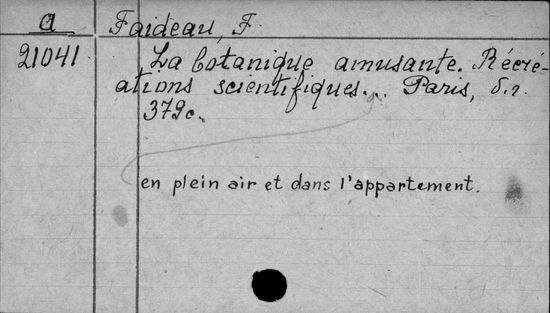 a Faideau, F.
21041 La botanique amusante. Récré-
ations scientifiques... Paris, s.a.
379c.
en plein air et dans l'appartement.